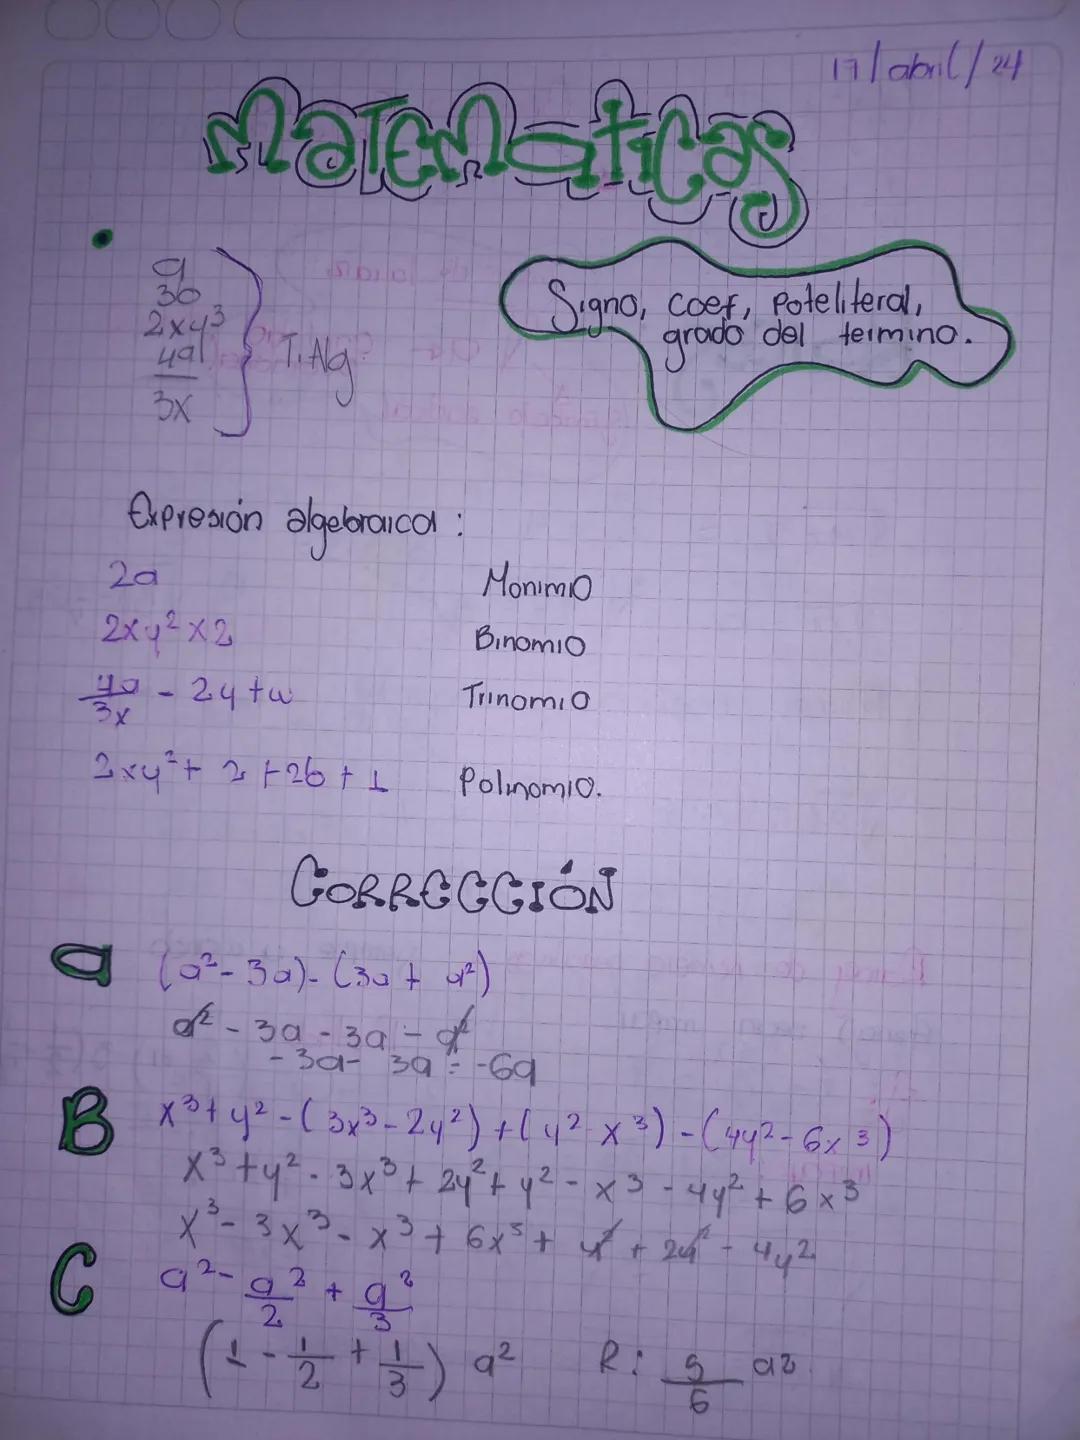 17/abril/24
Matematicas
a
3b
2xy³
4a
3x
T. Alg
Signo, coef, poteliteral,
grado del termino.
Expresión algebraica:
2a Monimio
2xy² x 2 Binomio
4a/3x - 2y + w Trinomio
2xy² + 2 + 2b + 1 Polinomio.
CORRECCIÓN
a (a² - 3a) - (3a + a²)
a² - 3a - 3a - a²
- 3a - 3a = -6a
B x³ + y² - (3x³ - 2y²) + (y² - x³) - (4y² - 6x³)
x³ + y² - 3x³ + 2y² + y² - x³ - 4y² + 6x³
x³ - 3x³ - x³ + 6x³ + y² + 2y² - 4y²
C a² - a²/2 + a²/3
(1 - 1/2 + 1/3) a² R: 5/6 a²